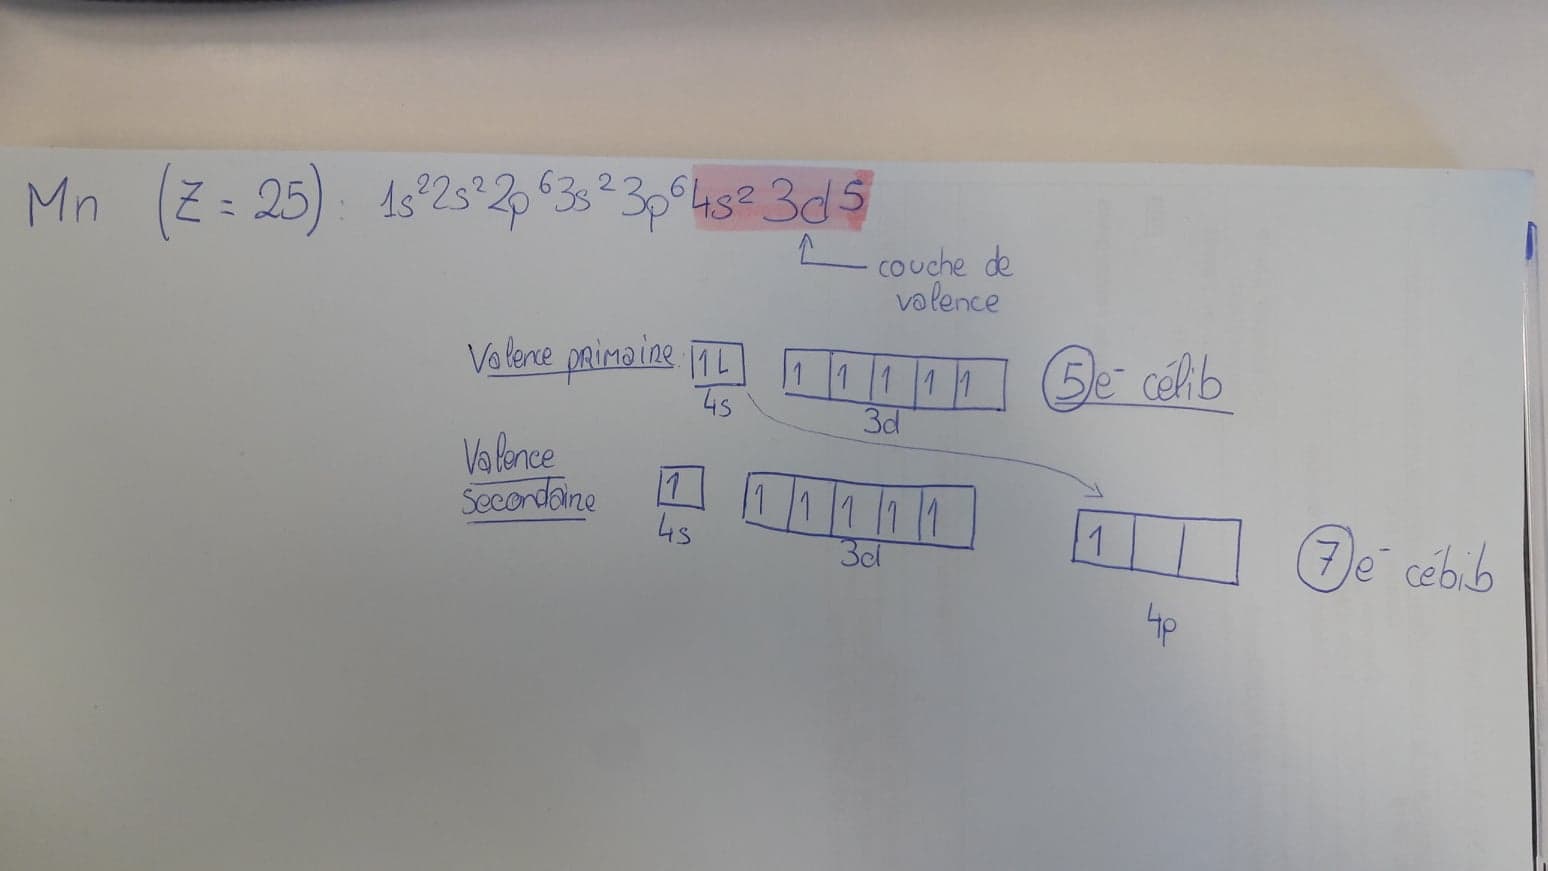 Mn (Z = 25) : 1s² 2s² 2p⁶ 3s² 3p⁶ 4s² 3d⁵
couche de
valence
Valence primaire : 1L 1 1 1 1 1 5 e⁻ célib
4s 3d
Valence
secondaire 1 1 1 1 1 1 1 7 e⁻ cébib
4s 3d
4p